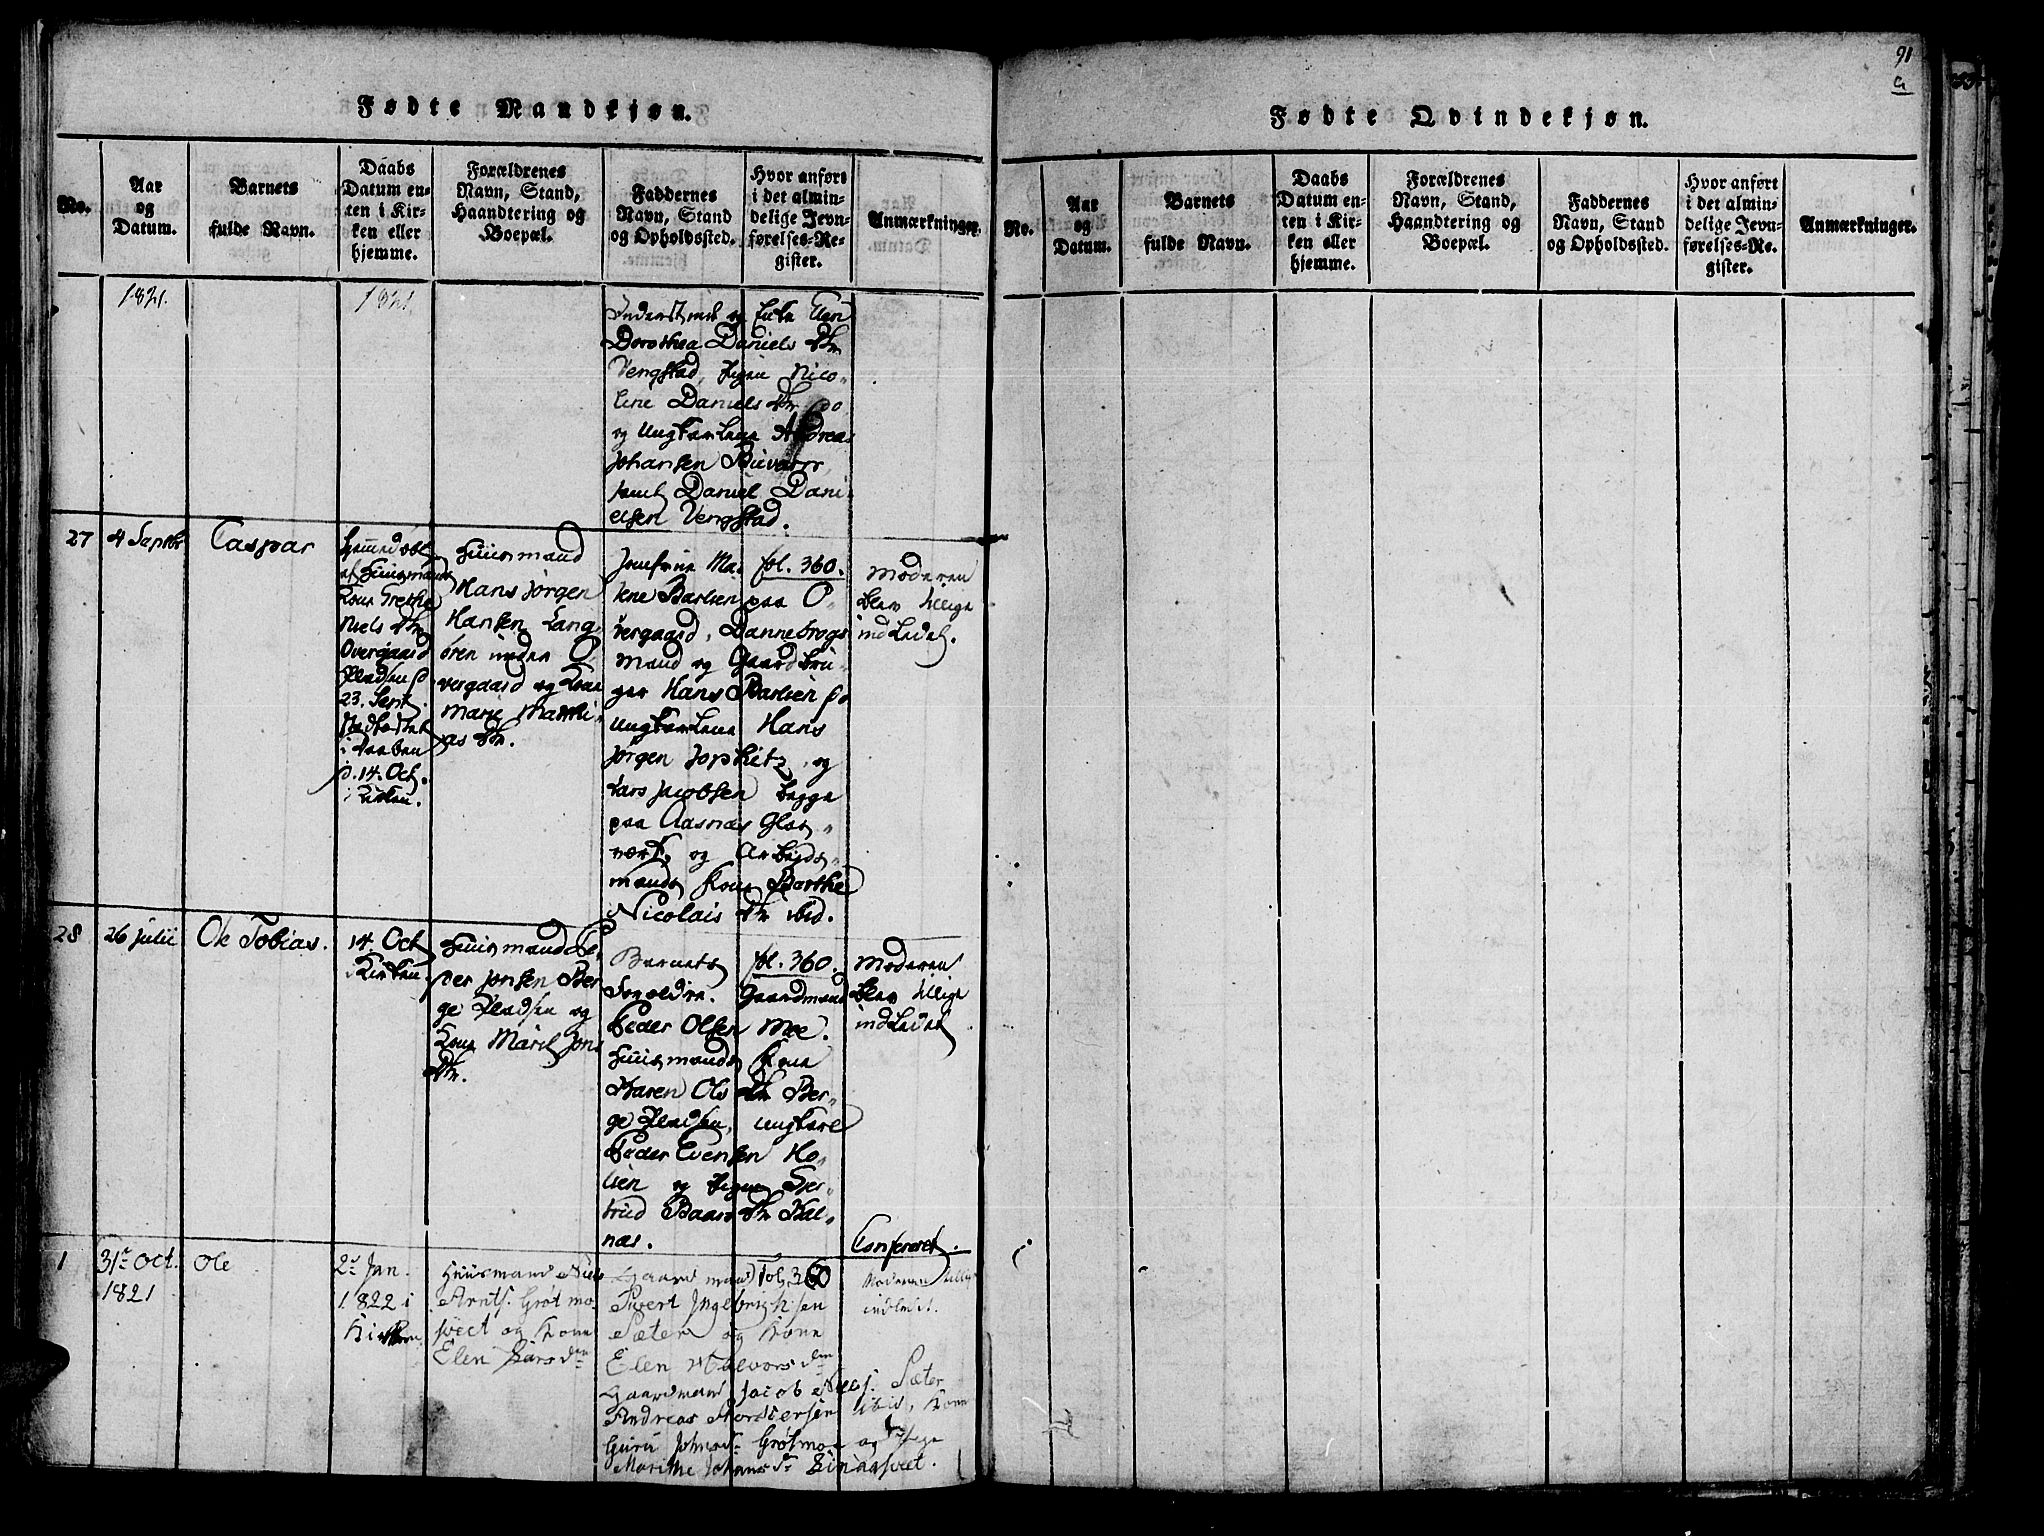 91
a
Fødte Mandkjøn.
No.
Aar
og
Datum.
Barnets
fulde Navn.
Daabs
Datum en-
ten i Kir-
ken eller
hjemme.
Forældrenes
Navn, Stand,
Haandtering og
Boepæl.
Faddernes
Navn, Stand
og Opholdssted.
Hvor anført
i det almin-
delige Jevn-
førelses-Re-
gister.
Anmærkninger.
1821.
1821.
og
Dorothea Daniels Dtr
Vengstad, Pigen Nico-
line Daniels Dtr
og Ungkarlene Andreas
Johansen
samt Daniel Dani-
elsen Vengstad.
27
4 Septbr
Caspar
Hjemmedøbt
af Huusmands
Kone Grethe
Niels Dtr
Overgaard
Pladsen d
23. Sept.
Stadfæstet
i Daaben
d. 14. Oct.
i Kirken.
Huusmand
Hans Jørgen
Hansen Lang-
bren under O-
vergaard og Kone
Marie Mathi-
as Dtr.
Jomfrue Ma-
lene Barlien paa O-
vergaard, Dannebrogs
Mand og Gaardbru-
ger Hans Barlien
Ungkarlene Hans
Jørgen og
Lars Jacobsen begge
paa Aasnæs Glas-
værk, og Arbeids-
mands Kone Barthe
Nicolais Dtr ibid.
fol. 360.
Moderen
blev tillige
indledet.
28
26 Julii
Ole Tobias.
14. Oct
i Kirken.
Huusmand Pe-
der Jonsen Ber-
ge Pladsen og
Kone Marit Jons
Dtr.
Barnets
Forældre. Gaardmand
Peder Olsen Moe.
Huusmands Kone
Karen Ols Dtr Ber-
ge Pladsen, Ungkarl
Peder Evensen Ho-
lien og Pigen Gjer-
trud Baars Dtr Kal-
næs.
fol. 360.
Moderen
blev tillige
indledet
Confereret.
1
31te Oct.
1821
Ole
2den Jan.
1822 i
Kirken
Huusmand Niels
Arnts. Grøtmo-
svect og Kone
Elen Lars dtr
Gaardmand
Sivert Ingebrigtsen
Sæter og Kone
Elen Halvors dtr
Gaardmand Jacob Nils. Sæter
Andreas Tordersen ibid, Kone
Guru Johnsdtr Grøtmoe og Pige
Marithe Johnsdtr Linnasvect.
fol. 360
Moderen tillige
indledet.
Fødte Qvindekjøn.
No.
Aar
og
Datum.
Barnets
fulde Navn.
Daabs
Datum en-
ten i Kir-
ken eller
hjemme.
Forældrenes
Navn, Stand,
Haandtering og
Boepæl.
Faddernes
Navn, Stand
og Opholdssted.
Hvor anført
i det almin-
delige Jevn-
førelses-Re-
gister.
Anmærkninger.